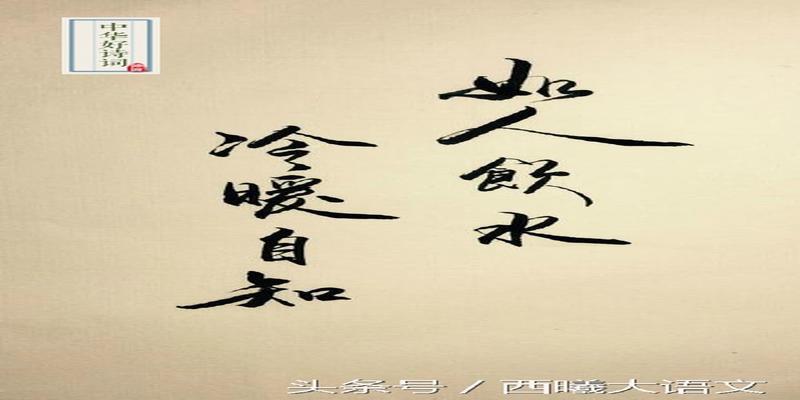 如人飲水
冷暖自知
中华好诗词
头条号 / 西曦大语文